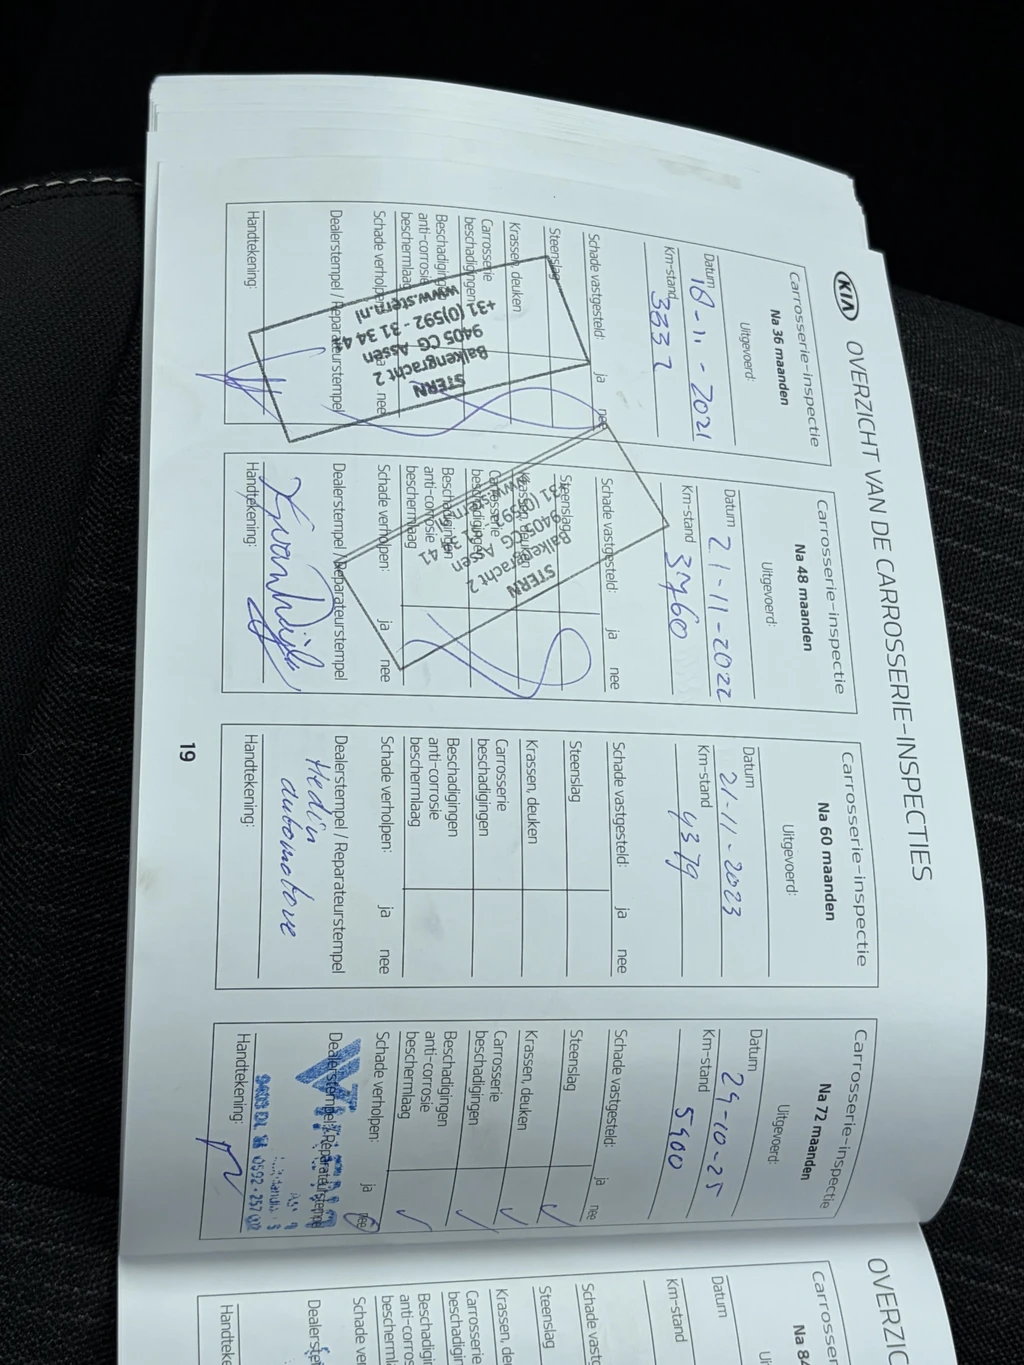 KIA OVERZICHT VAN DE CARROSSERIE-INSPECTIES
Carrosserie-inspectie
Na 36 maanden
Uitgevoerd:
Datum 18-11-2021
Km-stand 3332
Schade vastgesteld: ja nee
Steenslag
Krassen, deuken
Carrosserie
beschadigingen
Beschadigingen
anti-corrosie
beschermlaag
Schade verholpen: ja nee
Dealerstempel / Reparateurstempel
STERN
Balkengracht 2
9405 CG Assen
+31 (0)592 - 31 34 41
www.stern.nl
Handtekening:
Carrosserie-inspectie
Na 48 maanden
Uitgevoerd:
Datum 21-11-2022
Km-stand 3760
Schade vastgesteld: ja nee
Steenslag
Krassen, deuken
Carrosserie
beschadigingen
Beschadigingen
anti-corrosie
beschermlaag
Schade verholpen: ja nee
Dealerstempel / Reparateurstempel
STERN
Balkengracht 2
9405 CG Assen
Handtekening:
Carrosserie-inspectie
Na 60 maanden
Uitgevoerd:
Datum 21-11-2023
Km-stand 4379
Schade vastgesteld: ja nee
Steenslag
Krassen, deuken
Carrosserie
beschadigingen
Beschadigingen
anti-corrosie
beschermlaag
Schade verholpen: ja nee
Dealerstempel / Reparateurstempel
Hedin
automotive
Handtekening:
Carrosserie-inspectie
Na 72 maanden
Uitgevoerd:
Datum 29-10-25
Km-stand 5900
Schade vastgesteld: ja nee
Steenslag
Krassen, deuken
Carrosserie
beschadigingen
Beschadigingen
anti-corrosie
beschermlaag
Schade verholpen: ja nee
Dealerstempel / Reparateurstempel
Handtekening:
19
OVERZIC
Carrosser
Na 84
Datum
Km-stand
Schade vastg
Steenslag
Krassen, de
Carrosserie
beschadigin
Beschadigi
anti-corros
bescherml
Schade ver
Dealerste
Handteke